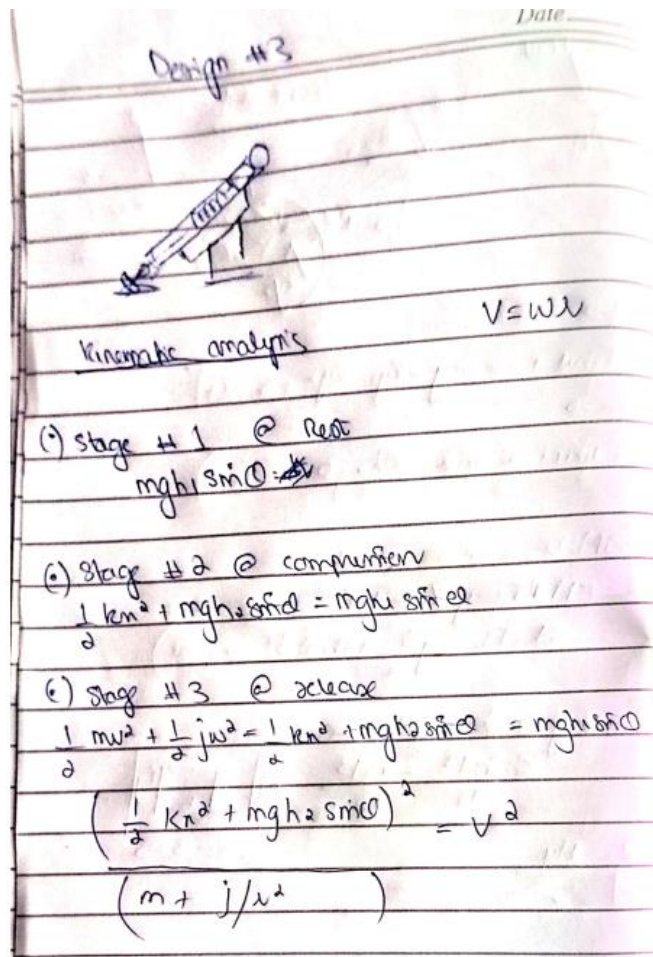 Date
Design #3
V=ωr
kinematic analysis
(•) stage #1 @ Rest
mgh₁ sinθ =
(•) Stage #2 @ compression
1/2 kx² + mgh₂ sinθ = mgh₁ sinθ
(•) Stage #3 @ release
1/2 mv² + 1/2 jω² = 1/2 kx² + mgh₂ sinθ = mgh₁ sinθ
(1/2 kx² + mgh₂ sinθ)² = v²
(m + j/r²)